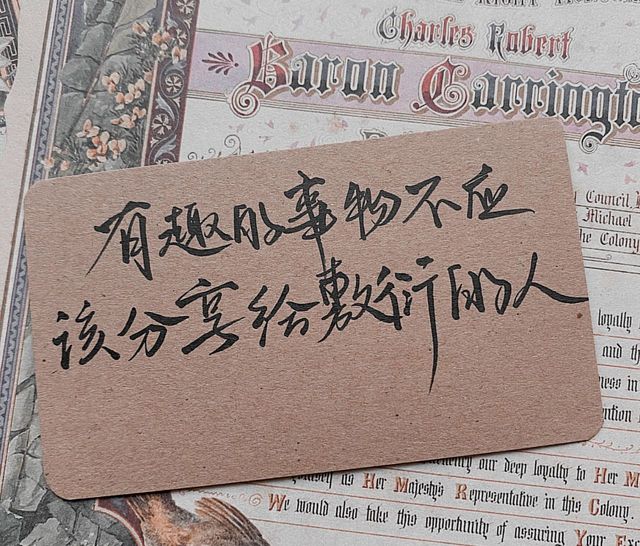 Charles Robert
Baron Carringt
Council,
Michael
the Colony
有趣的事物不应
该分享给敷衍的人
loyally
and th
ness in
ention
our deep loyalty to Her M
as Her Majesty's Representative in this Colony
We would also take this opportunity of assuring Your Ex